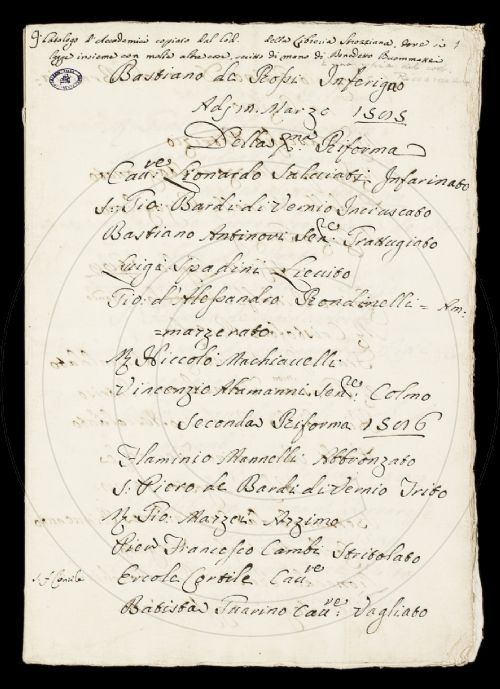 Catalogo d'Accademici copiato dal Cod. della Libreria Strozziana, dove si
legge insieme con molte altre cose, scritto di mano di Benedetto Buommattei
Bastiano de Rossi Inferigno
Marzo
Della pma. Riforma
Cavre. Leonardo Salviati Infarinato
S: Gio: Bardi di Vernio Incruscato
Bastiano Antinori Senre: Trattugiato
Luigi Spadini Lievito
Gio: d'Alessandro Rondinelli = Am:
=mazzerato
Mr Niccolò Machiavelli
Vincenzio Alamanni Senre: Colmo
Seconda Riforma
Flaminio Mannelli Abbronzato
S: Piero de Bardi di Vernio Trito
Mr Gio: Marzei Azzimo
Pier Francesco Cambi Stritolato
Ercole Cortile Cavre
Batista Guarino Cavre: Vagliato